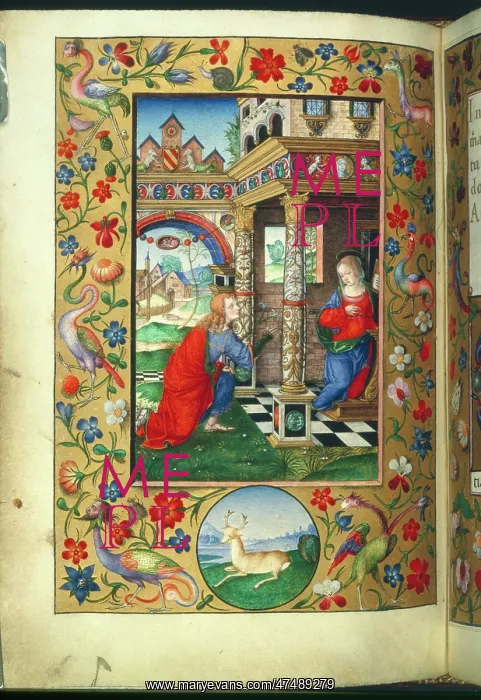 ME
PL
ME
PL
www.maryevans.com/47489279